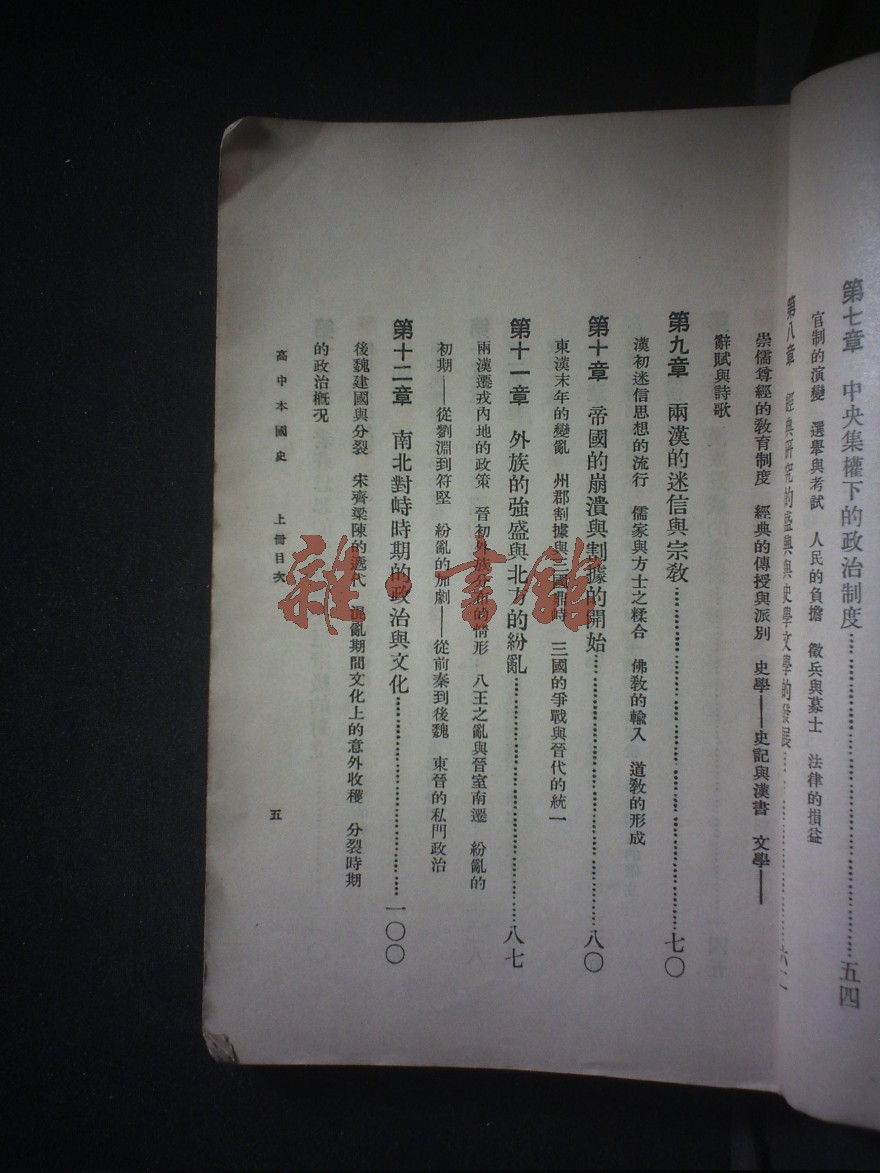 第七章　中央集權下的政治制度……五四
官制的演變　選舉與考試　人民的負擔　徵兵與募士　法律的損益
第八章　經典研究的盛興與史學文學的發展……六二
崇儒尊經的教育制度　經典的傳授與派別　史學——史記與漢書　文學——
辭賦與詩歌
第九章　兩漢的迷信與宗教……七〇
漢初迷信思想的流行　儒家與方士之糅合　佛教的輸入　道教的形成
第十章　帝國的崩潰與割據的開始……八〇
東漢末年的變亂　州郡割據與三國鼎峙　三國的爭戰與晉代的統一
第十一章　外族的強盛與北方的紛亂……八七
兩漢遷戎內地的政策　晉初外族分布的情形　八王之亂與晉室南遷　紛亂的
初期——從劉淵到符堅　紛亂的加劇——從前秦到後魏　東晉的私門政治
第十二章　南北對峙時期的政治與文化……一〇〇
後魏建國與分裂　宋齊梁陳的遞代　混亂期間文化上的意外收穫　分裂時期
的政治概況
高中本國史　上冊目次
五
雜·書館